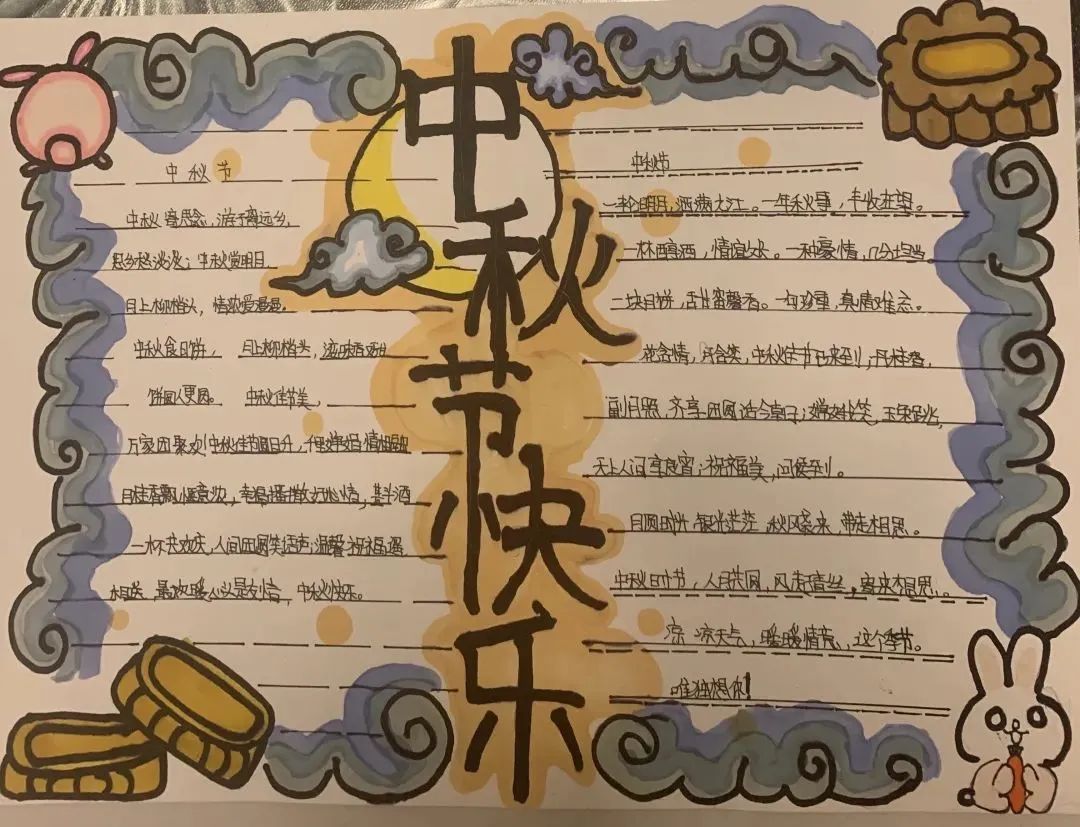 中秋节快乐
中秋节
中秋寄思念，游子离远乡，
思乡愁淡淡；中秋赏明月
月上柳梢头，情浓爱漫漫。
中秋食月饼， 月上柳梢头，滋味香甜
饼圆人更圆。 中秋佳节美，
万家团聚欢！中秋佳节圆月升，
月桂香飘惬意浓，幸福播撒好心情，其半酒
一杯共欢庆，人间团圆笑语声；温馨祝福遥
相送，最欢暖心头是友情，中秋快乐。
中秋节
一轮明月，洒满大江。一年秋季，丰收在望。
一杯酒，情谊长。一种豪情，几分担当。
二块月饼，甜馨香。一句珍重，真情难忘。
花含情，月含笑，中秋佳节已来到；丹桂香，
月照，齐享团圆话今朝；嫦娥笑，玉兔跳，
天上人间享良宵；祝福美，问候到。
月圆时光，银光茫茫，秋风袭来，带走相思。
中秋时节，人月共圆，风走情丝，寄来相思。
凉凉天气，暖暖情意，这个季节。
唯独想你！